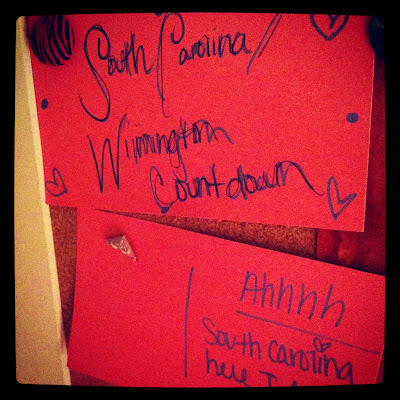 South Carolina/
Wilmington
Countdown
Ahhhh
South Carolina
here I